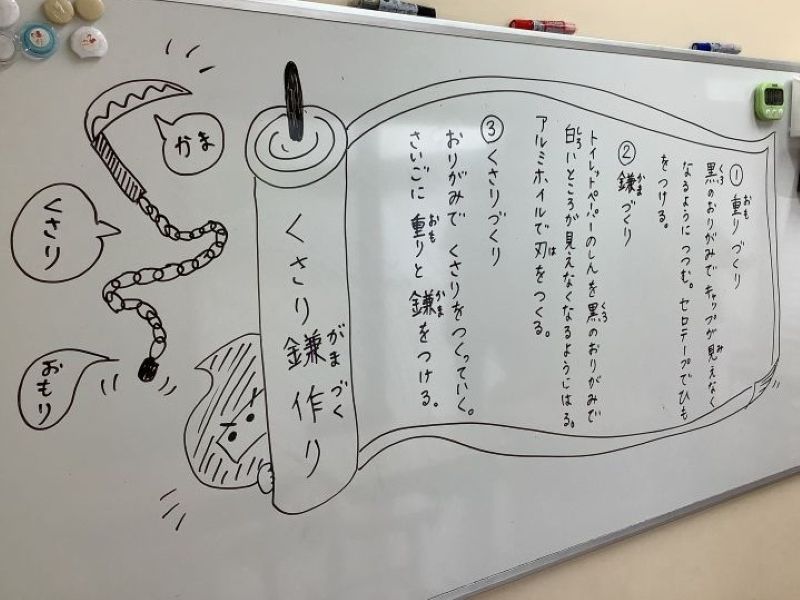 くさり鎌作り
① 重りづくり
黒のおりがみでキャップが見えなく
なるようにつつむ。セロテープでひも
をつける。
② 鎌づくり
トイレットペーパーのしんを黒のおりがみで
白いところが見えなくなるようにはる。
アルミホイルで刃をつくる。
③ くさりづくり
おりがみでくさりをつくっていく。
さいごに重りと鎌をつける。
かま
くさり
おもり